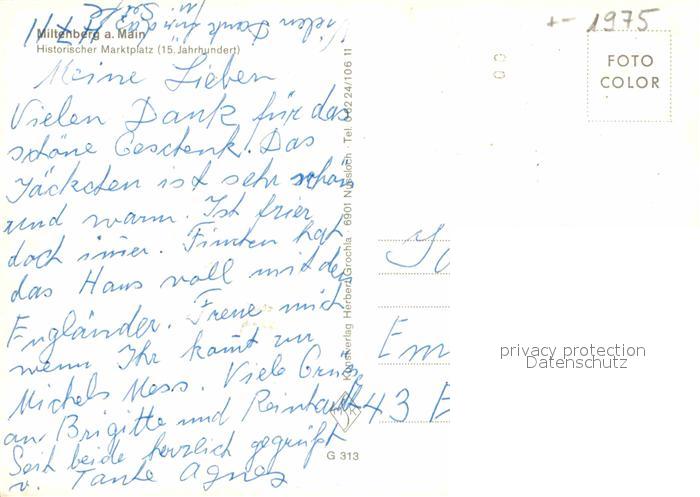 Miltenberg a. Main
Historischer Marktplatz (15. Jahrhundert)
Vielen Dank für das
Meine Lieben
Vielen Dank für das
schöne Geschenk. Das
Jäckchen ist sehr schön
und warm. Ist hier
doch immer. hat
das Haus voll mit den
Engländer. Freue mich
wenn Ihr kommt zur
Michels Mess. Viele Grüße
an Brigitte und Reinhardt
Seit beide herzlich gegrüßt
v. Tante Agnes
Kunstverlag Herbert Grochla · 6901 Nussloch · Tel. 0 62 24/106 11
G 313
+- 1975
FOTO
COLOR
Em
43 E
privacy protection
Datenschutz